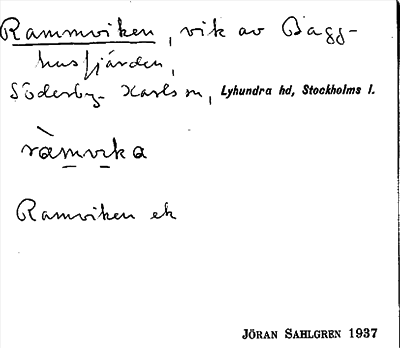 Rammviken, vik av Bagg-
husfjärden,
Söderby-Karls sn, Lyhundra hd, Stockholms l.
ràmvika
Ramviken ek
JÖRAN SAHLGREN 1937